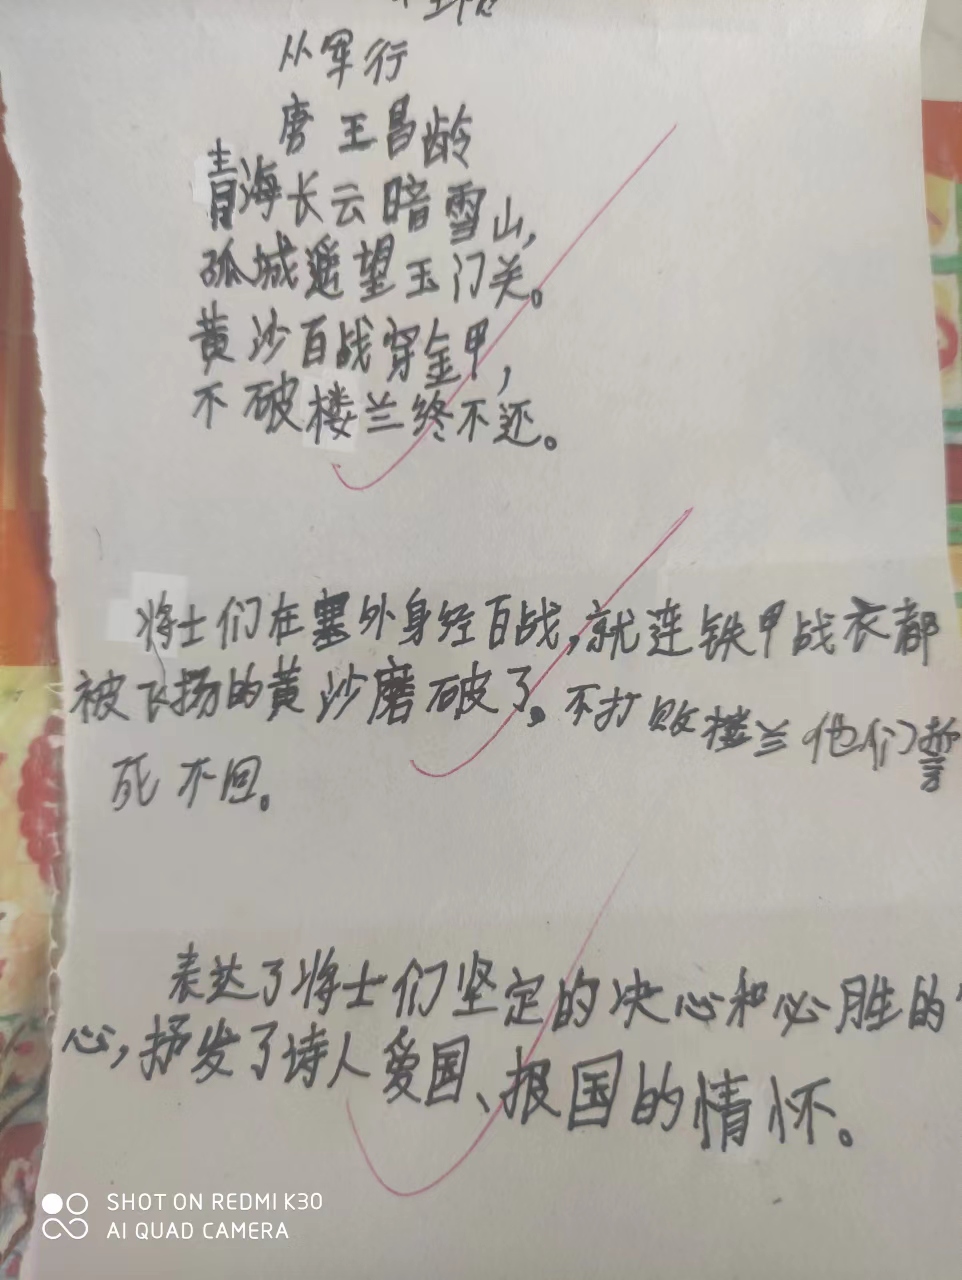 从军行
唐 王昌龄
青海长云暗雪山,
孤城遥望玉门关。
黄沙百战穿金甲,
不破楼兰终不还。
将士们在塞外身经百战,就连铁甲战衣都
被飞扬的黄沙磨破了。不打败楼兰他们誓
死不回。
表达了将士们坚定的决心和必胜的
心,抒发了诗人爱国、报国的情怀。
SHOT ON REDMI K30
AI QUAD CAMERA